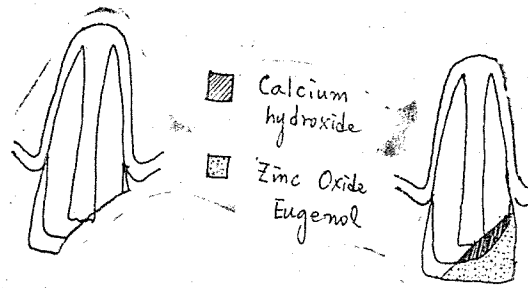 Calcium
hydroxide
Zinc Oxide
Eugenol